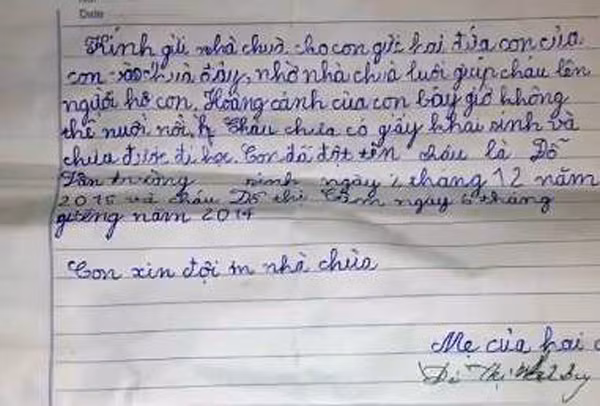 Date
Kính gửi nhà chùa cho con gửi hai đứa con của
con vào chùa đây, nhờ nhà chùa luôi giúp cháu lên
người hô con. Hoàng cảnh của con bây giờ không
thể nuôi nổi. 2 cháu chưa có giấy khai sinh và
chưa được đi học. Con đã đặt tên cháu là Đỗ
Văn trường sinh ngày 2 tháng 12 năm
2015 và cháu Đỗ thị ngày 6 tháng
giêng năm 2014
Con xin đội ơn nhà chùa
Mẹ của hai
Đỗ Thị